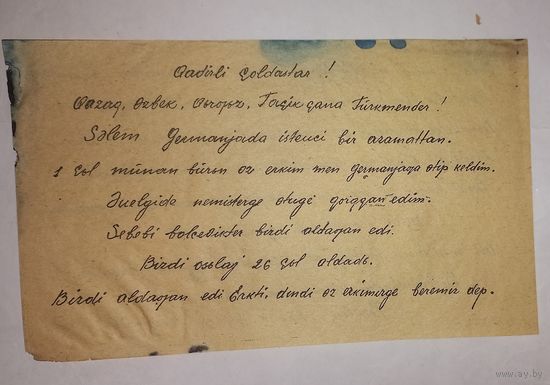 Qadirli çoldastar!
Qazaq, Ozbek, Qorojoz, Taçik çana Türkmender!
Salem Germanjada istenci bir azamattan.
1 çol munan būrøn oz erkim men germanjaga otip keldim.
Əuelgide nemisterge otugè qorqqan edim.
Sebebi bolcebikter birdi aldagan edi.
Birdi osolaj 26 çol aldadь.
Birdi aldaqan edi Erkti, dindi oz erkimerge beremiz dep.
www.ay.by